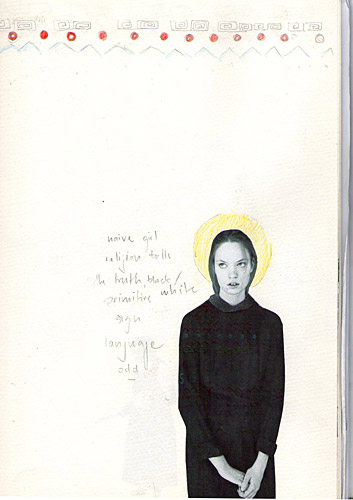 naive girl
religion tells
the truth black/
primitive white
sign
language
odd